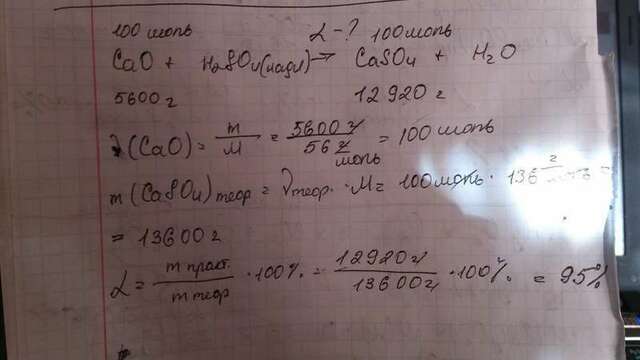 100 моль α - ? 100 моль
CaO + H₂SO₄(надл) → CaSO₄ + H₂O
5600 г 12920 г
ν(CaO) = m/M = 5600 г / 56 г/моль = 100 моль
m(CaSO₄)теор = νтеор. · M = 100 моль · 136 г/моль =
= 13600 г
α = m практ. / m теор · 100% = 12920 г / 13600 г · 100% = 95%